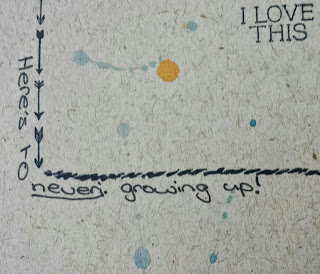 I LOVE
THIS
Here's to
never growing up!